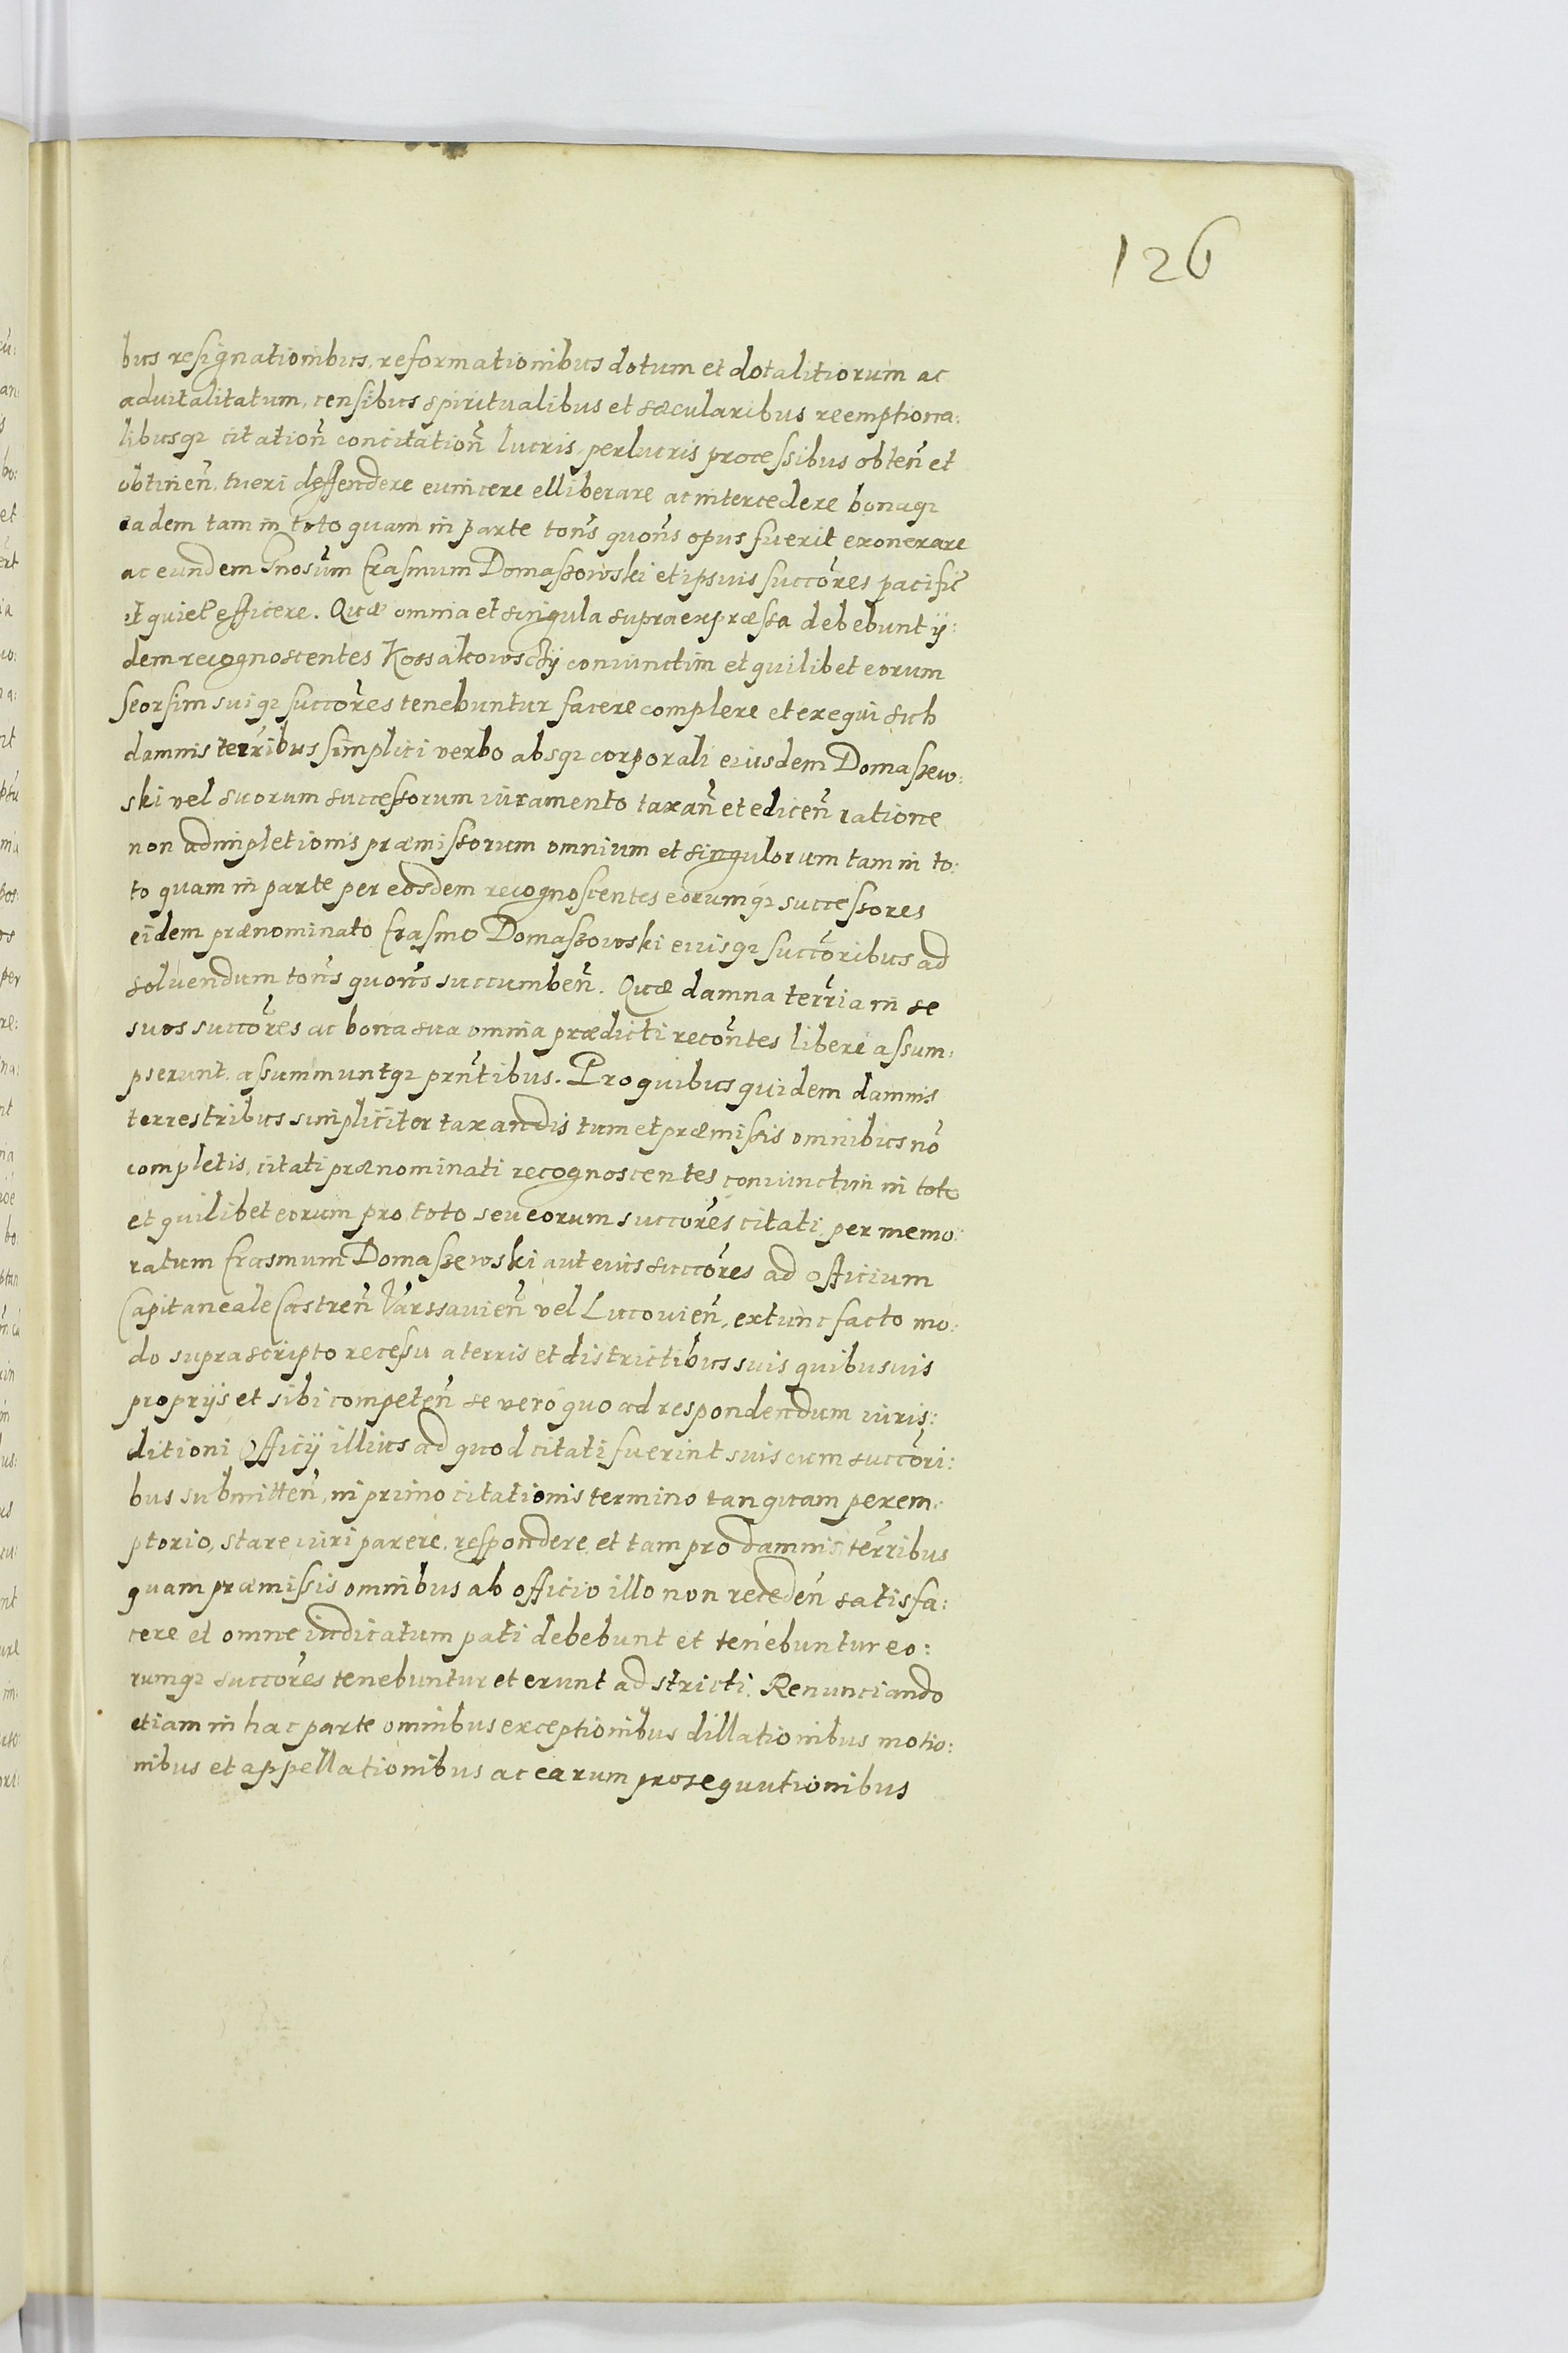 126
bus resignationibus, reformationibus dotum et dotalitiorum ac
aduitalitatum, censibus spiritualibus et sæcularibus reemptiona:
libusqȝ citationẽ concitationẽ lucris, perlucris processibus obtenẽ et
obtinenẽ, tueri deffendere euincere elliberare ac intercedere bonaqȝ
eadem tam in toto quam in parte totiẽs quotiẽs opus fuerit exonerare
ac eundem Gnosũm Erasmum Domaszowski et ipsius succõres pacifiẽ
et quietẽ efficere. Quæ omnia et singula supra expræssa debebunt ij:
dem recognoscentes Kossakowscÿ coniunctim et quilibet eorum
seorsim suiqȝ succõres tenebuntur facere complere et exequi sub
damnis terr̃ibus simplici verbo absqȝ corporali eiusdem Domaszew:
ski vel suorum successorum iuramento taxanẽ et edicenẽ ratione
non adimpletionis præmissorum omnium et singulorum tam in to:
to quam in parte per eosdem recognoscentes eorumqȝ successores
eidem prænominato Erasmo Domaszowski eiusqȝ succõribus ad
soluendum tõns quõns succumbenẽ. Quæ damna terr̃ia in se
suos succõres ac bona sua omnia prædicti recõntes libere assum:
pserunt, assummuntqȝ prñtibus. Pro quibus quidem damnis
terrestribus simpliciter taxandis tum et præmissis omnibus nõ
completis, citati prænominati recognoscentes coniunctim in toto
et quilibet eorum pro toto seu eorum succõres citati per memo:
ratum Erasmum Domaszewski aut eius succõres ad officium
Capitaneale Castrenẽ Varssauienẽ vel Lucouienẽ, extunc facto mo:
do suprascripto recessu a terris et districtibus suis quibusuis
proprijs et sibi competenẽ se vero quo ad respondendum iuris:
ditioni Officij illius ad quod citati fuerint suis cum succõri:
bus submittenẽ, in primo citationis termino tanquam perem:
ptorio, stare iuri parere, respondere et tam pro damnis terr̃ibus
quam præmissis omnibus ab officio illo non recedenẽ satisfa:
cere et omne iudicatum pati debebunt et tenebuntur eo:
rumqȝ succõres tenebuntur et erunt adstricti. Renunciando
etiam in hac parte omnibus exceptionibus dillationibus motio:
nibus et appellationibus ac earum prosequutionibus